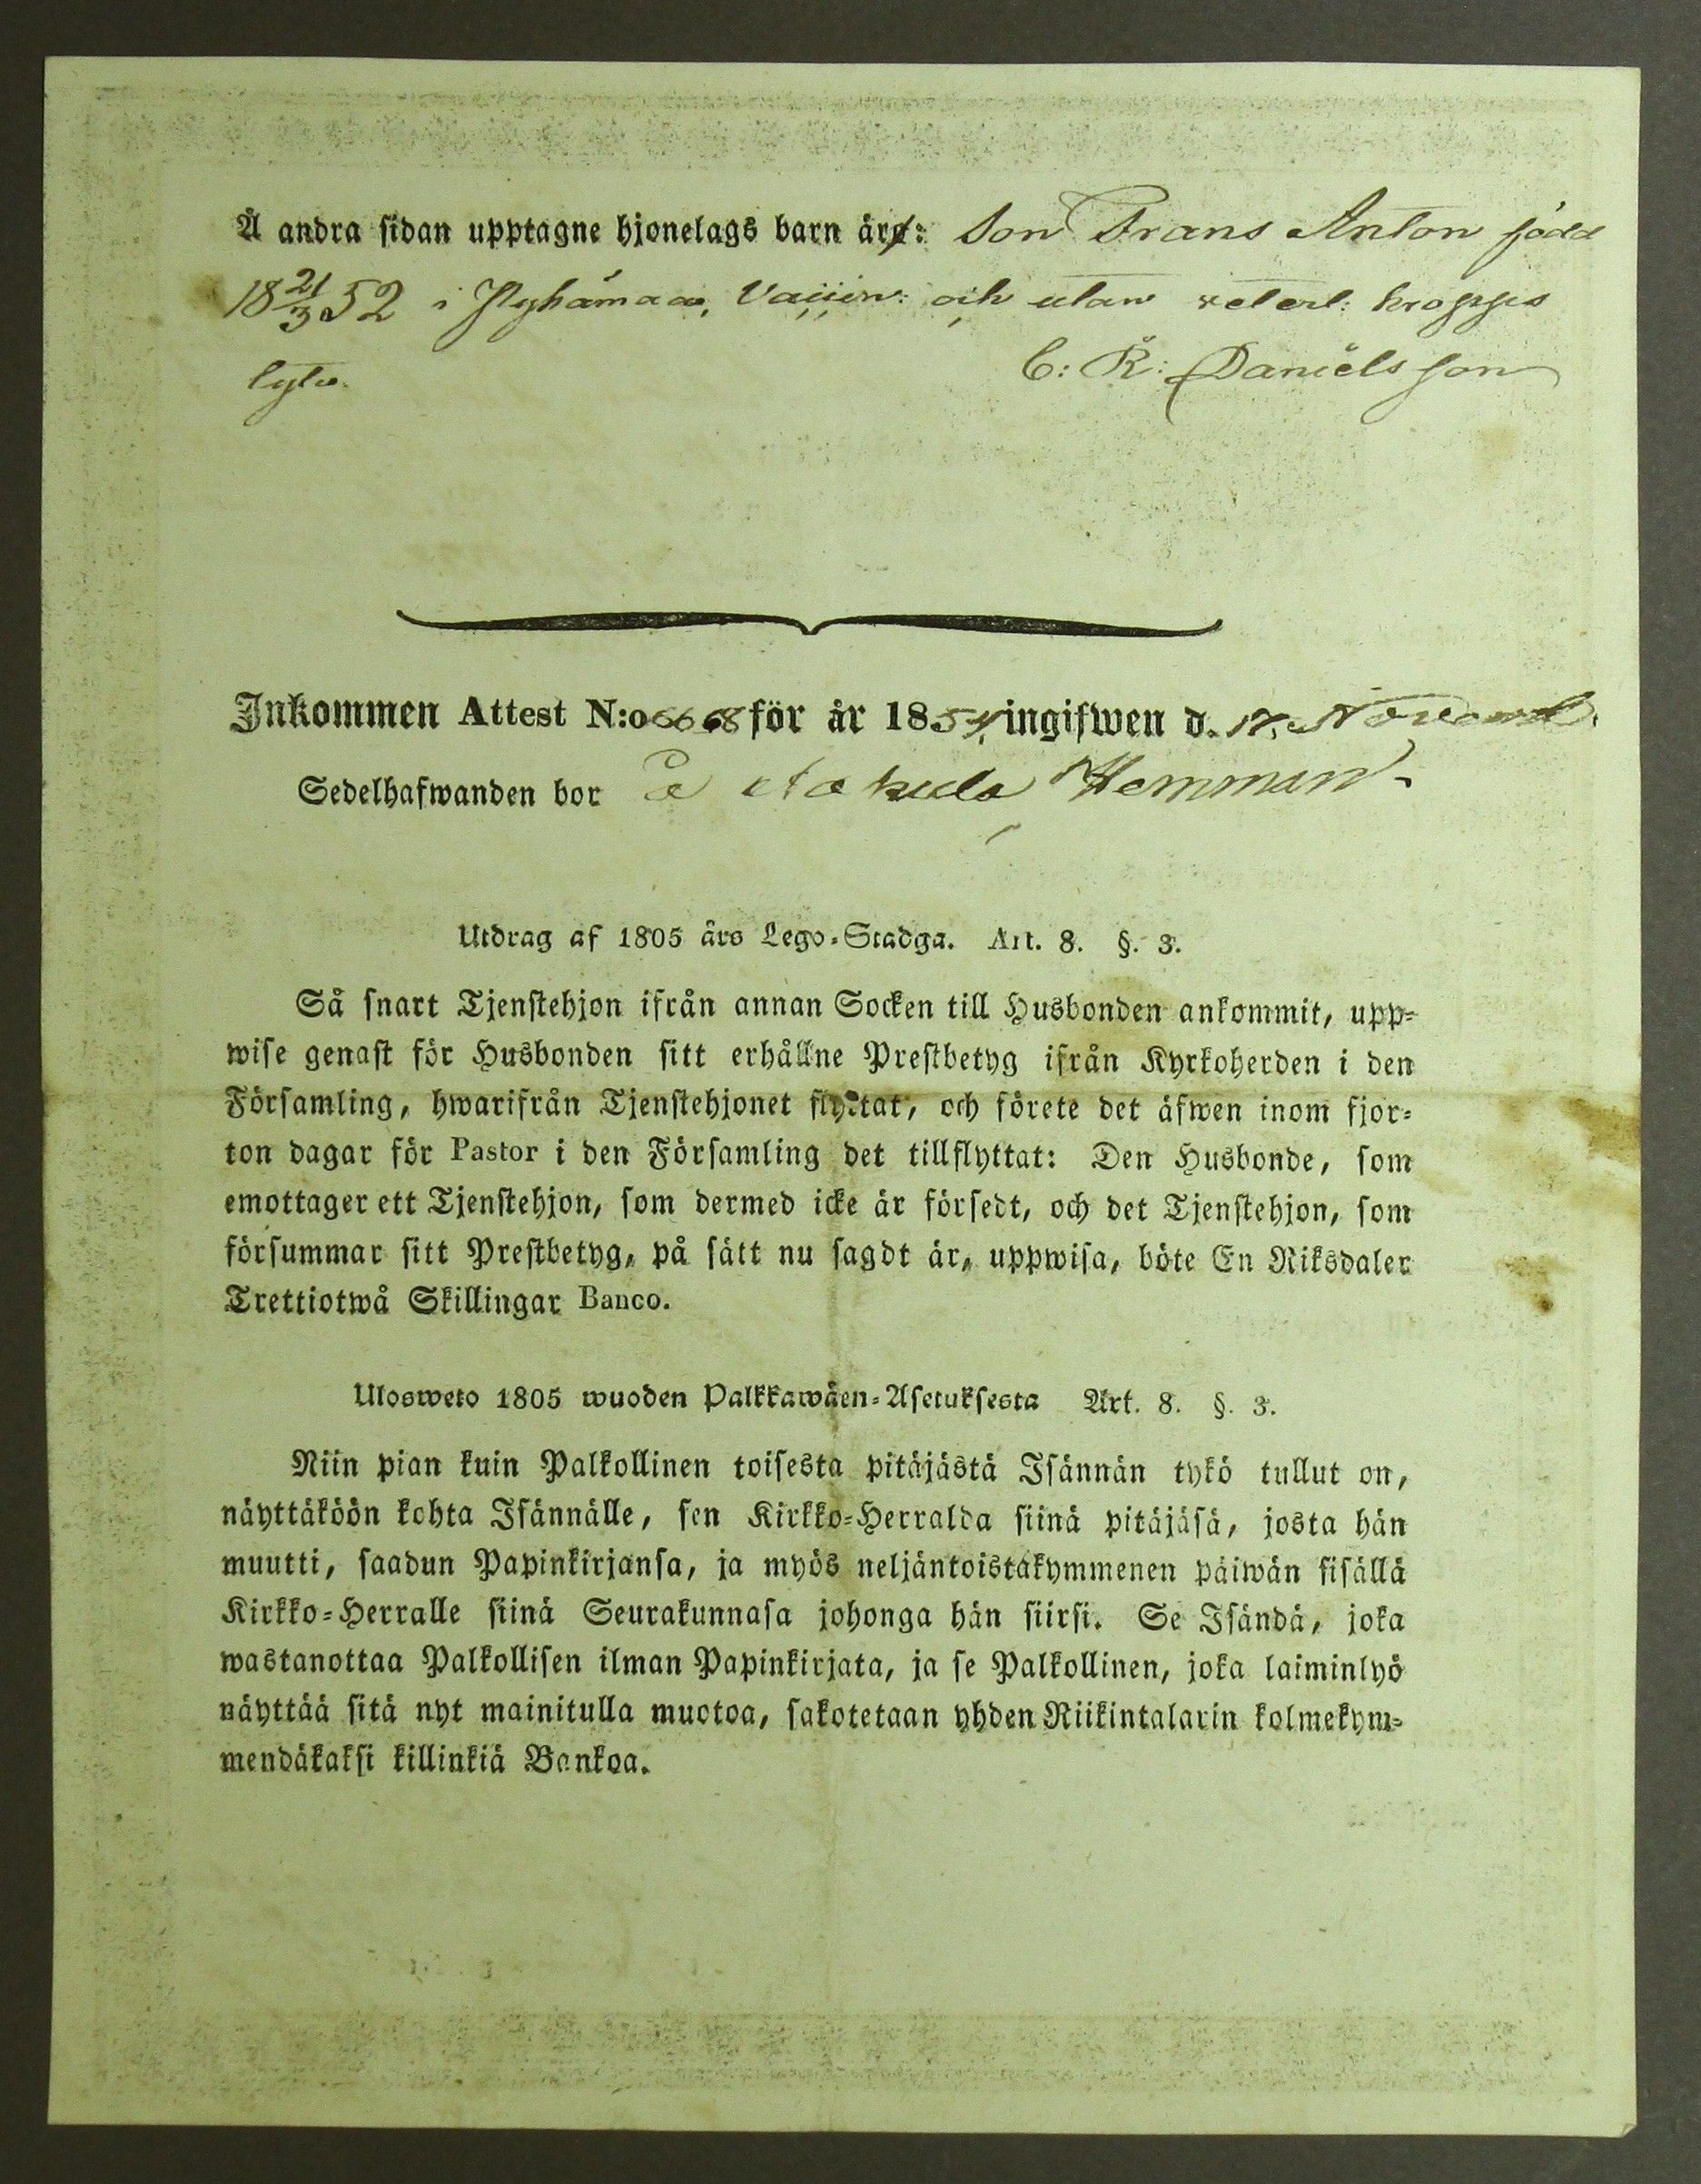 Å andra sidan upptagne hjonelags barn äre: Son Frans Anton född
18 21/3 52 i Nyhämaa, Vaccin: och utan veterl: kropps
lyte.
C: R: Danielsson
Inkommen Attest N:o 668 för år 1854, ingifwen d. 17. Novemb.
Sedelhafwanden bor På Hemman.
Utdrag af 1805 års Lego-Stadga. Art. 8. §. 3.
Så snart Tjenstehjon ifrån annan Socken till Husbonden ankommit, upp-
wise genast för Husbonden sitt erhållne Prestbetyg ifrån Kyrkoherden i den
Församling, hwarifrån Tjenstehjonet flyttat, och förete det äfwen inom fjor-
ton dagar för Pastor i den Församling det tillflyttat: Den Husbonde, som
emottager ett Tjenstehjon, som dermed icke är försedt, och det Tjenstehjon, som
försummar sitt Prestbetyg, på sätt nu sagdt är, uppwisa, böte En Riksdaler
Trettiotwå Skillingar Banco.
Ulosweto 1805 wuoden Palkkawäen-Asetuksesta Art. 8. §. 3.
Niin pian kuin Palkollinen toisesta pitäjästä Isännän tykö tullut on,
näyttäköön kohta Isännälle, sen Kirkko-Herralda siinä pitäjäsä, josta hän
muutti, saadun Papinkirjansa, ja myös neljäntoistakymmenen päiwän sisällä
Kirkko-Herralle siinä Seurakunnasa johonga hän siirsi. Se Isändä, joka
wastanottaa Palkollisen ilman Papinkirjata, ja se Palkollinen, joka laiminlyö
näyttää sitä nyt mainitulla muotoa, sakotetaan yhden Riikintalarin kolmekym-
mendäkaksi killinkiä Bankoa.